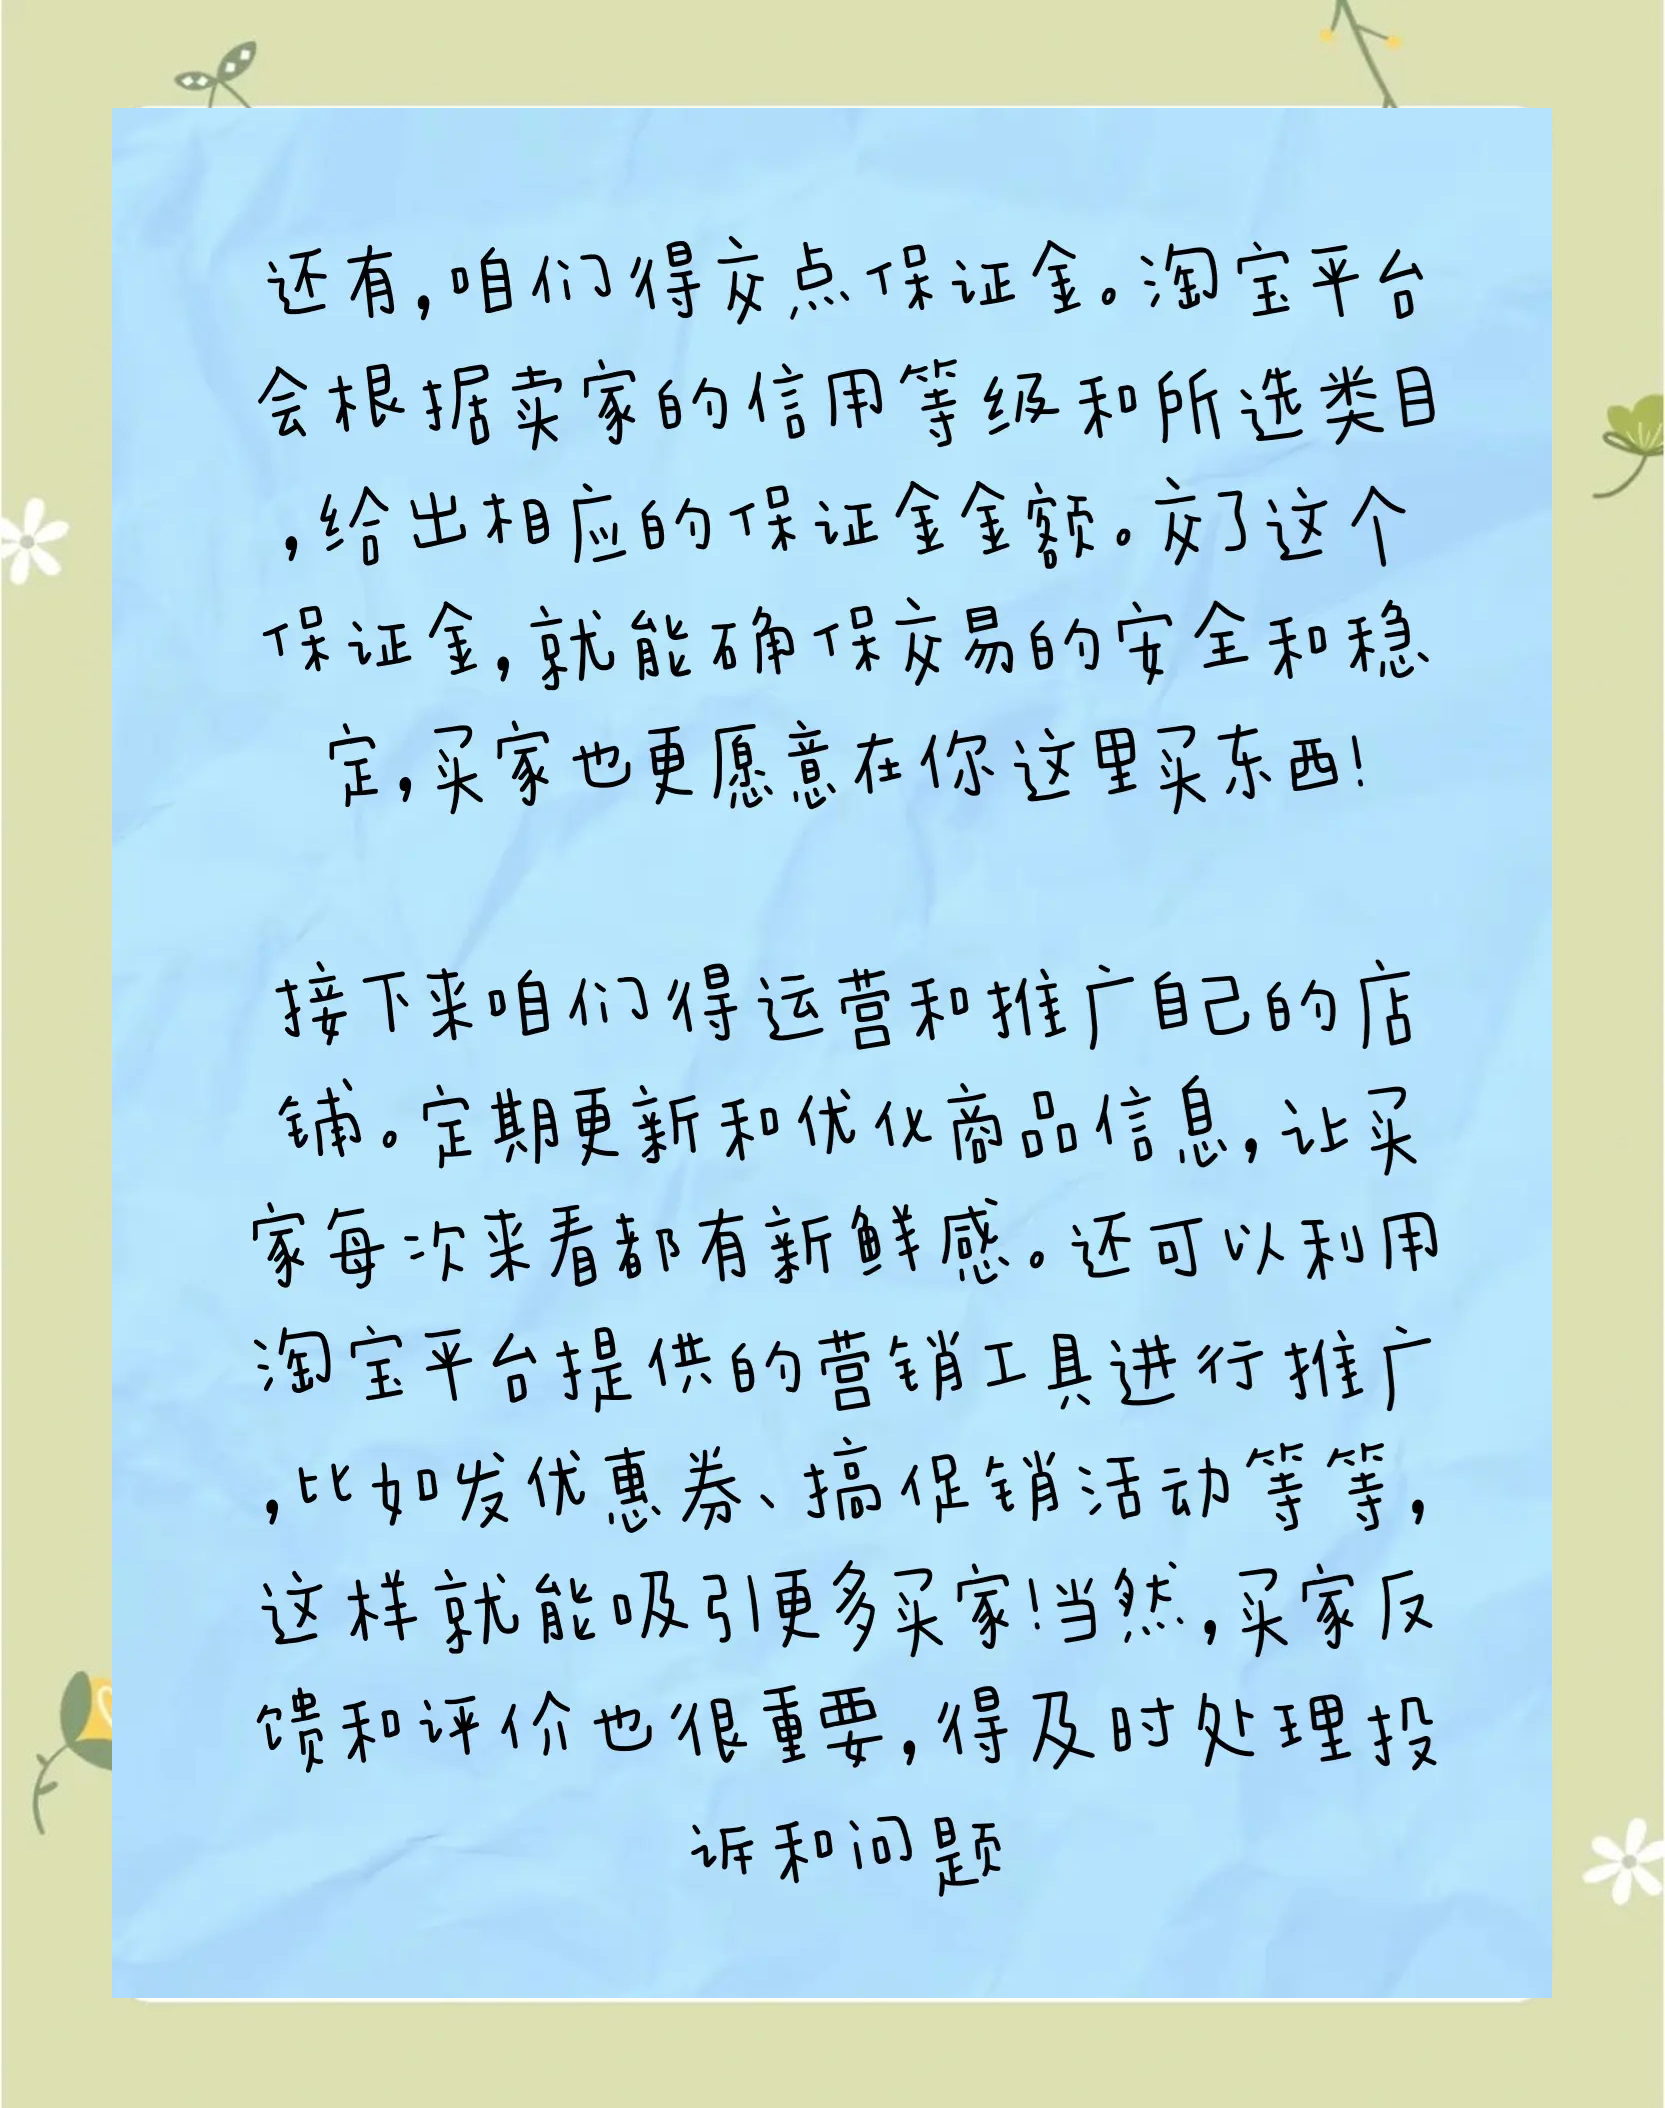 还有,咱们得交点保证金。淘宝平台
会根据卖家的信用等级和所选类目
,给出相应的保证金金额。交了这个
保证金,就能确保交易的安全和稳
定,买家也更愿意在你这里买东西!
接下来咱们得运营和推广自己的店
铺。定期更新和优化商品信息,让买
家每次来看都有新鲜感。还可以利用
淘宝平台提供的营销工具进行推广
,比如发优惠券、搞促销活动等等,
这样就能吸引更多买家!当然,买家反
馈和评价也很重要,得及时处理投
诉和问题